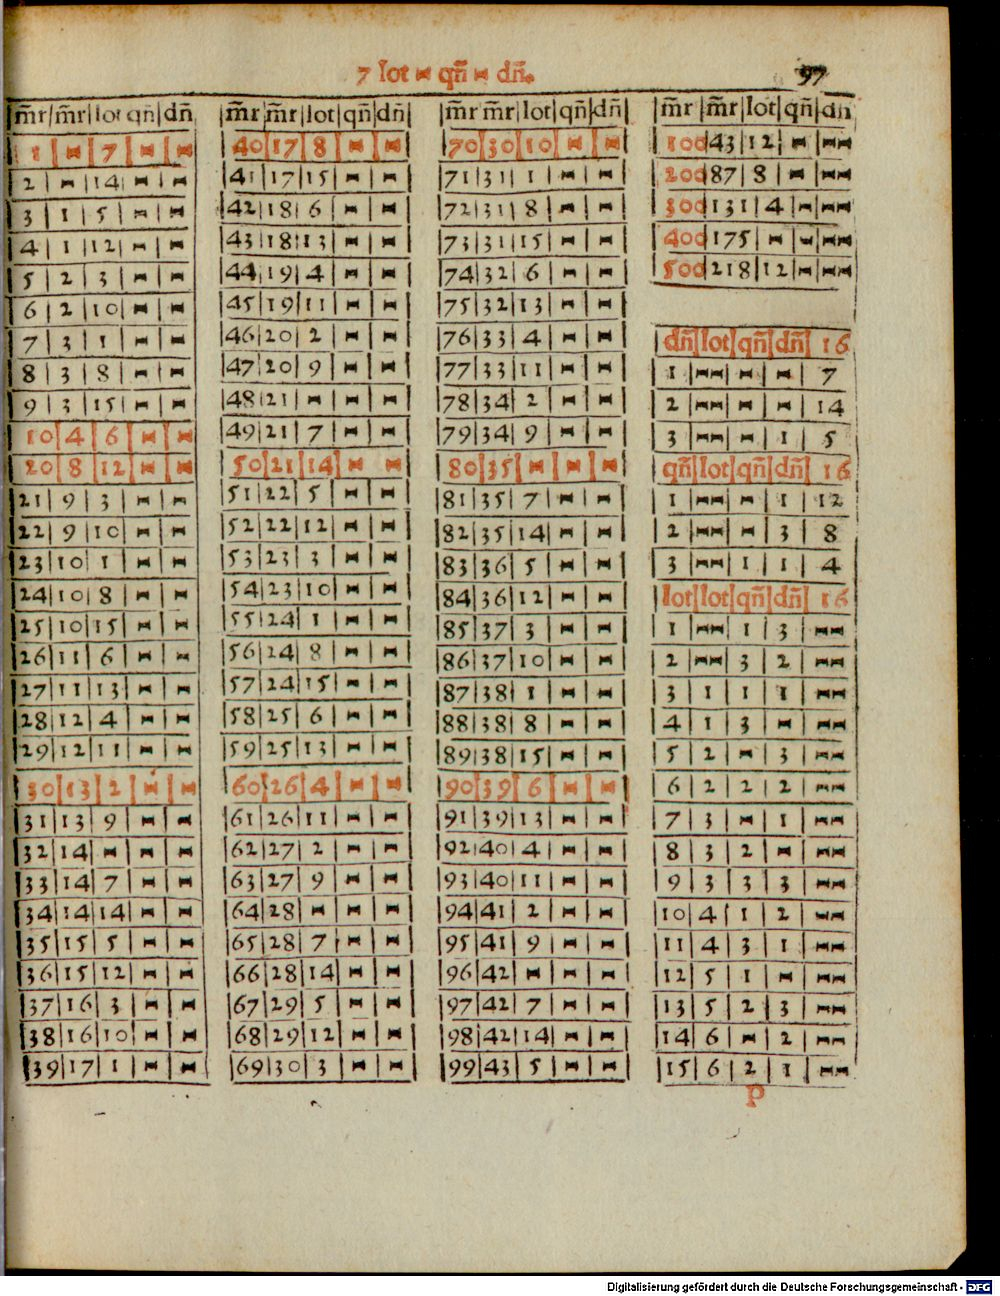 7 lot ⋈ qñ ⋈ dñ.
97
m̃r m̃r lot qñ dñ
1 ⋈ 7 ⋈ ⋈
2 ⋈ 14 ⋈ ⋈
3 1 5 ⋈ ⋈
4 1 12 ⋈ ⋈
5 2 3 ⋈ ⋈
6 2 10 ⋈ ⋈
7 3 1 ⋈ ⋈
8 3 8 ⋈ ⋈
9 3 15 ⋈ ⋈
10 4 6 ⋈ ⋈
20 8 12 ⋈ ⋈
21 9 3 ⋈ ⋈
22 9 10 ⋈ ⋈
23 10 1 ⋈ ⋈
24 10 8 ⋈ ⋈
25 10 15 ⋈ ⋈
26 11 6 ⋈ ⋈
27 11 13 ⋈ ⋈
28 12 4 ⋈ ⋈
29 12 11 ⋈ ⋈
30 13 2 ⋈ ⋈
31 13 9 ⋈ ⋈
32 14 ⋈ ⋈ ⋈
33 14 7 ⋈ ⋈
34 14 14 ⋈ ⋈
35 15 5 ⋈ ⋈
36 15 12 ⋈ ⋈
37 16 3 ⋈ ⋈
38 16 10 ⋈ ⋈
39 17 1 ⋈ ⋈
m̃r m̃r lot qñ dñ
40 17 8 ⋈ ⋈
41 17 15 ⋈ ⋈
42 18 6 ⋈ ⋈
43 18 13 ⋈ ⋈
44 19 4 ⋈ ⋈
45 19 11 ⋈ ⋈
46 20 2 ⋈ ⋈
47 20 9 ⋈ ⋈
48 21 ⋈ ⋈ ⋈
49 21 7 ⋈ ⋈
50 21 14 ⋈ ⋈
51 22 5 ⋈ ⋈
52 22 12 ⋈ ⋈
53 23 3 ⋈ ⋈
54 23 10 ⋈ ⋈
55 24 1 ⋈ ⋈
56 24 8 ⋈ ⋈
57 24 15 ⋈ ⋈
58 25 6 ⋈ ⋈
59 25 13 ⋈ ⋈
60 26 4 ⋈ ⋈
61 26 11 ⋈ ⋈
62 27 2 ⋈ ⋈
63 27 9 ⋈ ⋈
64 28 ⋈ ⋈ ⋈
65 28 7 ⋈ ⋈
66 28 14 ⋈ ⋈
67 29 5 ⋈ ⋈
68 29 12 ⋈ ⋈
69 30 3 ⋈ ⋈
m̃r m̃r lot qñ dñ
70 30 10 ⋈ ⋈
71 31 1 ⋈ ⋈
72 31 8 ⋈ ⋈
73 31 15 ⋈ ⋈
74 32 6 ⋈ ⋈
75 32 13 ⋈ ⋈
76 33 4 ⋈ ⋈
77 33 11 ⋈ ⋈
78 34 2 ⋈ ⋈
79 34 9 ⋈ ⋈
80 35 ⋈ ⋈ ⋈
81 35 7 ⋈ ⋈
82 35 14 ⋈ ⋈
83 36 5 ⋈ ⋈
84 36 12 ⋈ ⋈
85 37 3 ⋈ ⋈
86 37 10 ⋈ ⋈
87 38 1 ⋈ ⋈
88 38 8 ⋈ ⋈
89 38 15 ⋈ ⋈
90 39 6 ⋈ ⋈
91 39 13 ⋈ ⋈
92 40 4 ⋈ ⋈
93 40 11 ⋈ ⋈
94 41 2 ⋈ ⋈
95 41 9 ⋈ ⋈
96 42 ⋈ ⋈ ⋈
97 42 7 ⋈ ⋈
98 42 14 ⋈ ⋈
99 43 5 ⋈ ⋈
m̃r m̃r lot qñ dñ
100 43 12 ⋈ ⋈⋈
200 87 8 ⋈ ⋈⋈
300 131 4 ⋈ ⋈⋈
400 175 ⋈ ⋈ ⋈⋈
500 218 12 ⋈ ⋈⋈
dñ lot qñ dñ 16
1 ⋈⋈ ⋈ ⋈ 7
2 ⋈⋈ ⋈ ⋈ 14
3 ⋈⋈ ⋈ 1 5
qñ lot qñ dñ 16
1 ⋈⋈ ⋈ 1 12
2 ⋈⋈ ⋈ 3 8
3 ⋈⋈ 1 1 4
lot lot qñ dñ 16
1 ⋈⋈ 1 3 ⋈⋈
2 ⋈⋈ 3 2 ⋈⋈
3 1 1 1 ⋈⋈
4 1 3 ⋈ ⋈⋈
5 2 ⋈ 3 ⋈⋈
6 2 2 2 ⋈⋈
7 3 ⋈ 1 ⋈⋈
8 3 2 ⋈ ⋈⋈
9 3 3 3 ⋈⋈
10 4 1 2 ⋈⋈
11 4 3 1 ⋈⋈
12 5 1 ⋈ ⋈⋈
13 5 2 3 ⋈⋈
14 6 ⋈ 2 ⋈⋈
15 6 2 1 ⋈⋈
P
Digitalisierung gefördert durch die Deutsche Forschungsgemeinschaft - DFG